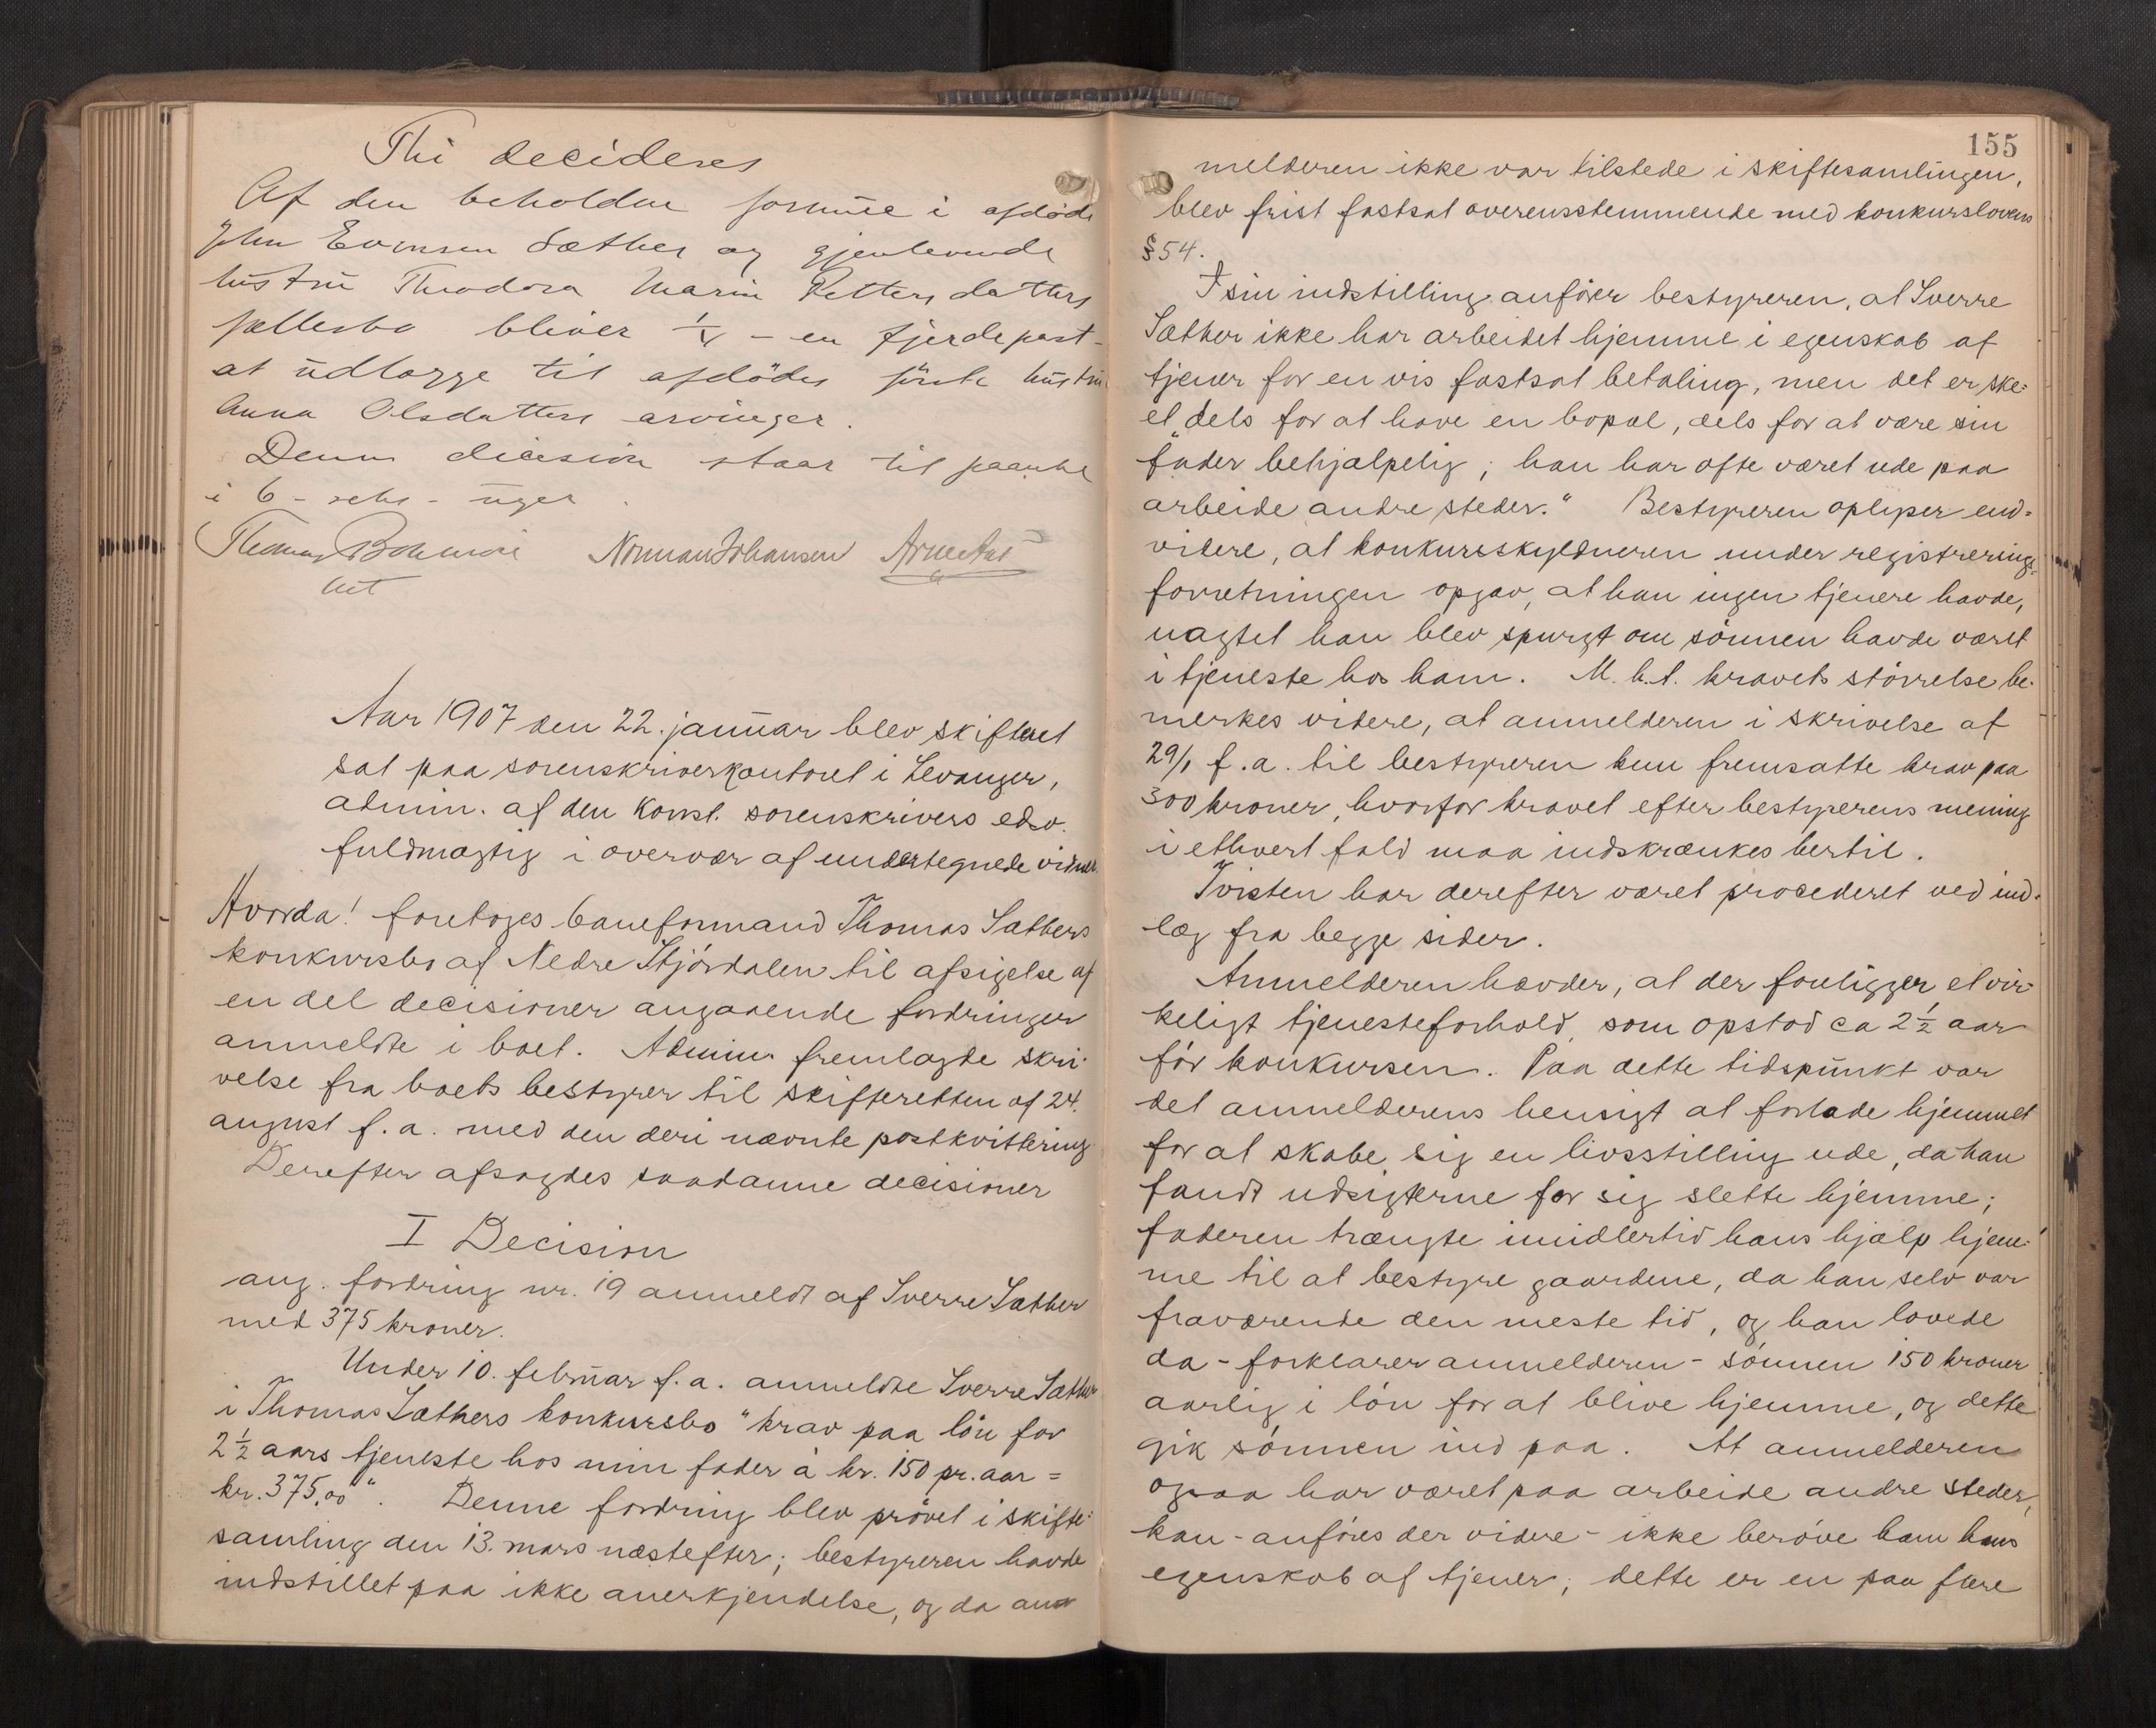 Thi decideres
Af den beholdne formue i afdøde
John Evensen Sæther og gjenlevende
hustru Theodora Marie Pettersdatters
fællesbo bliver 1/4 - en fjerdepart -
at udlægge til afdødes første hustru
Anna Olsdatters arvinger.
Denne decision staar til paaanke
i 6 - seks - uger.
Thomas
Norman Johansen
Aar 1907 den 22. januar blev skifteret
sat paa sorenskriverkontoret i Levanger,
admin. af den konst. sorenskrivers edsv.
fuldmægtig i overvær af undertegnede vidner.
Hvorda! foretoges baneformand Thomas Sæthers
konkursbo af Nedre Stjørdalen til afsigelse af
en del decisioner angaaende fordringer
anmeldte i boet. Admin. fremlagde skri-
velse fra boets bestyrer til skifteretten af 24.
august f. a. med den deri nævnte postkvittering
Derefter afsagdes saadanne decisioner
I Decision
ang. fordring nr. 19 anmeldt af Sverre Sæther
med 375 kroner.
Under 10. februar f. a. anmeldte Sverre Sæther
i Thomas Sæthers konkursbo "krav paa løn for
2 1/2 aars tjeneste hos min fader à kr. 150 pr. aar =
kr. 375,00". Denne fordring blev prøvet i skifte-
samling den 13. mars næstefter; bestyreren havde
indstillet paa ikke anerkjendelse, og da an-
155
melderen ikke var tilstede i skiftesamlingen,
blev frist fastsat overensstemmende med konkurslovens
§ 54.
I sin indstilling anfører bestyreren, at Sverre
Sæther ikke har arbeidet hjemme i egenskab af
tjener for en vis fastsat betaling, men det er ske-
et "dels for at have en bopæl, dels for at være sin
fader behjælpelig; han har ofte været ude paa
arbeide andre steder." Bestyreren oplyser end-
videre, at konkursskyldneren under registrerings-
forretningen opgav, at han ingen tjenere havde,
uagtet han blev spurgt om sønnen havde været
i tjeneste hos ham. M. h. t. kravets størrelse be-
merkes videre, at anmelderen i skrivelse af
29/1 f. a. til bestyreren kun fremsatte krav paa
300 kroner, hvorfor kravet efter bestyrerens mening
i ethvert fald maa indskrænkes hertil.
Tvisten har derefter været procederet ved ind-
læg fra begge sider.
Anmelderen hævder, at der foreligger et vir-
keligt tjenesteforhold, som opstod ca 2 1/2 aar
før konkursen. Paa dette tidspunkt var
det anmelderens hensigt at forlade hjemmet
for at skabe sig en livsstilling ude, da han
fandt udsigterne for sig slette hjemme;
faderen trængte imidlertid hans hjælp hjem-
me til at bestyre gaardene, da han selv var
fraværende den meste tid, og han lovede
da - forklarer anmelderen - sønnen 150 kroner
aarlig i løn for at blive hjemme, og dette
gik sønnen ind paa. At anmelderen
ogsaa har været paa arbeide andre steder,
kan - anføres der videre - ikke berøve ham hans
egenskab af tjener; dette er en paa flere